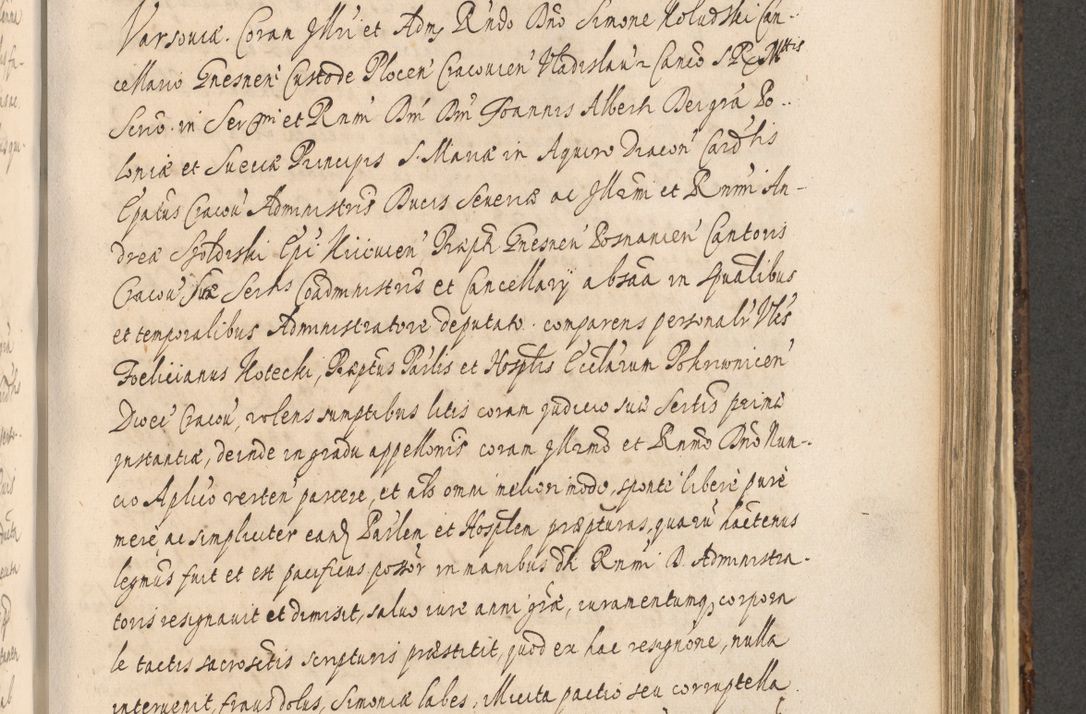 Varsoviæ. Coram Jllri et Adm Rndo Dno Simone Koludzki Can-
cellario Gnesnen Custode Plocen Cracovien Vladislau Canco S R Mttis
Serio in Sermi et Rnmi Dni Dni Joannis Alberti Dei gra Po-
loniæ et Sueciæ Principis S. Mariæ in Aquiro Diacon Cardlis
Epatus Cracov Administris Ducis Severiæ ac Jllrmi et Rnmi An-
dreæ Szoldrski Epi Kiiovien Præpti Gnesnen Posnanien Cantoris
Cracov Suæ Sertis Coadministris et Cancellarij absaa in spualibus
et temporalibus Administratore deputato. comparens personalr Vlis
Foelicianus Kotecki, Præptus Parlis et Hosptlis Ecclarum Pokrzywnicen
Dioec Cracov, volens sumptibus litis coram judicio suæ Sertis primæ
instantiæ, deinde in gradu appellonis coram Jllrmo et Rnmo Dno Nun-
cio Aplico verten parcere, et als omni meliori modo, sponte libere pure
mere ac simpliciter eand Parlem et Hosplem præpturas, quarum hactenus
legmus fuit et est pacificus possor in manibus dti Rnmi D. Administra-
toris resignavit et dimisit, salvo iure anni græ, iuramentumq corpora
le tactis sacrosctis scripturis præstitit, quod ex hac resignone, nulla
intervenit, fraus dolus, Simoniæ labes, illicita pactio seu corruptella